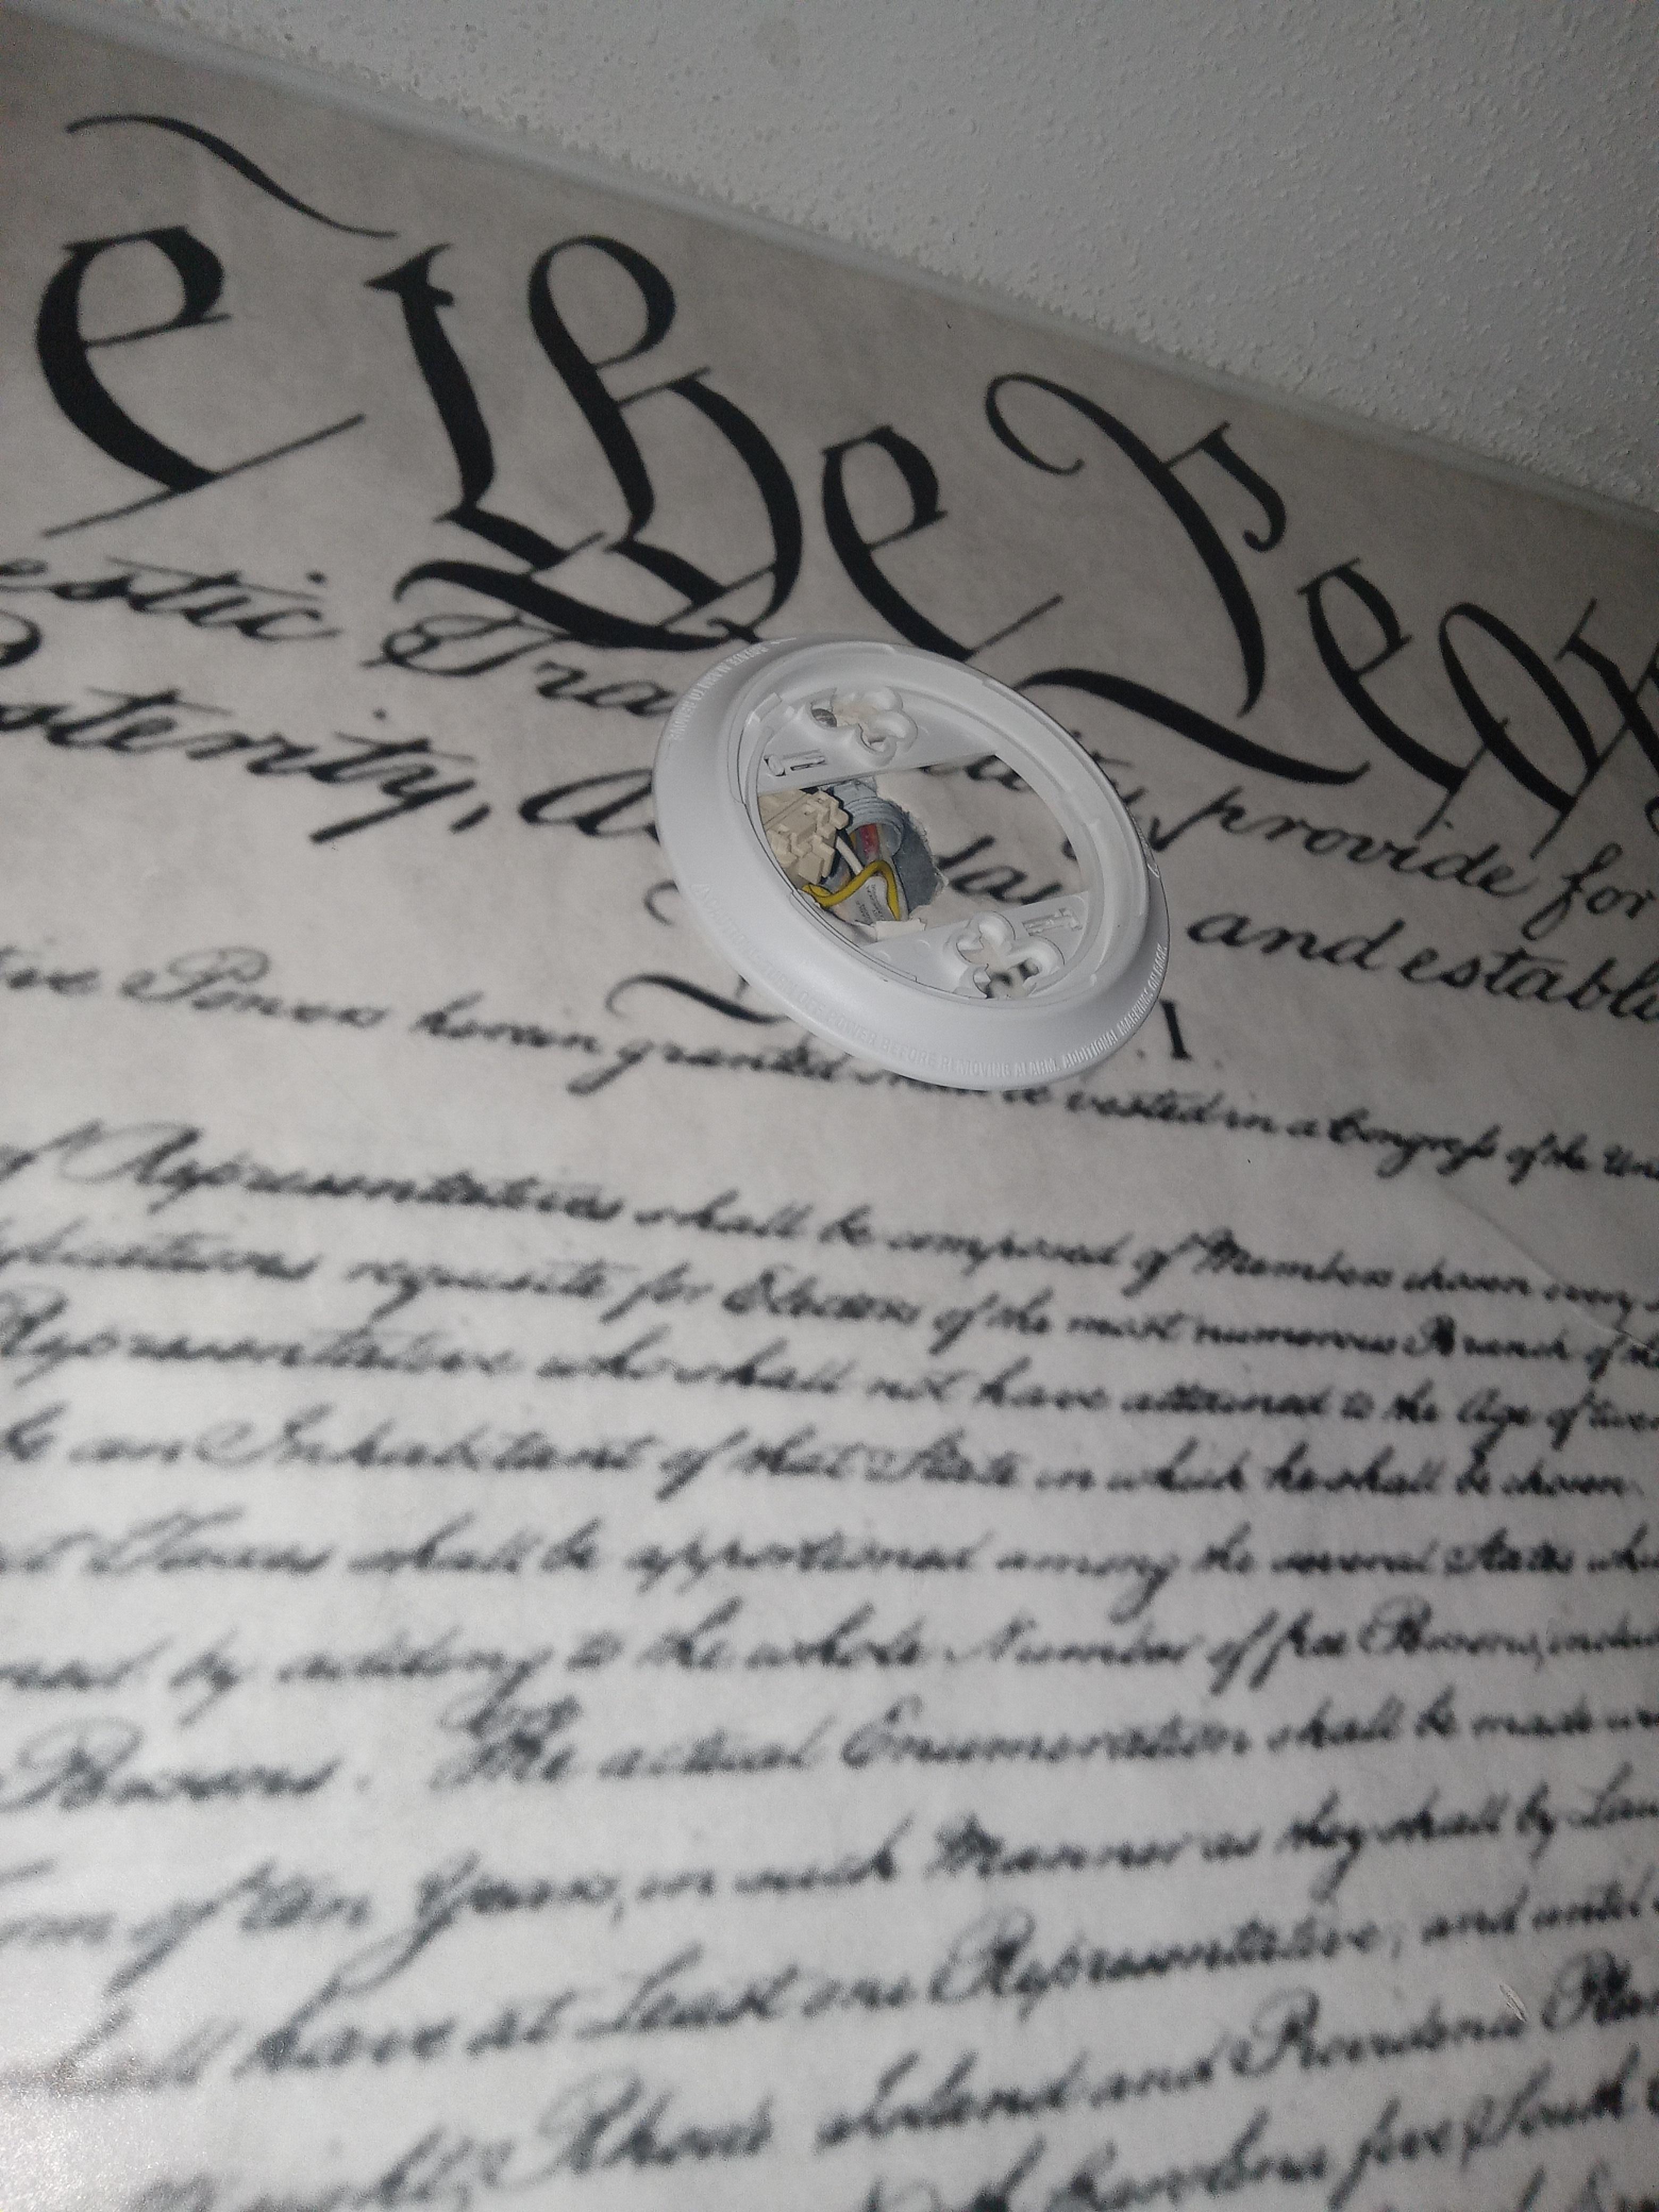 e the Peop
estic Tra ity, provide for
osterity, do and establi
I.
ive Powers herein granted shall be vested in a Congress of the Uni
of Representatives shall be composed of Members chosen every
requisite for Electors of the most numerous Branch of the
Representative who shall not have attained to the Age of twen
be an Inhabitant of that State in which he shall be chosen.
Taxes shall be apportioned among the several States whi
by adding to the whole Number of free Persons, includ
Persons. The actual Enumeration shall be made
of ten Years, in such Manner as they shall by Law
shall have at Least one Representative; and until
eight, Rhode Island and Providence Plan
five, South
POWER BEFORE REMOVING ALARM. ADDITIONAL MARKINGS ON BACK.